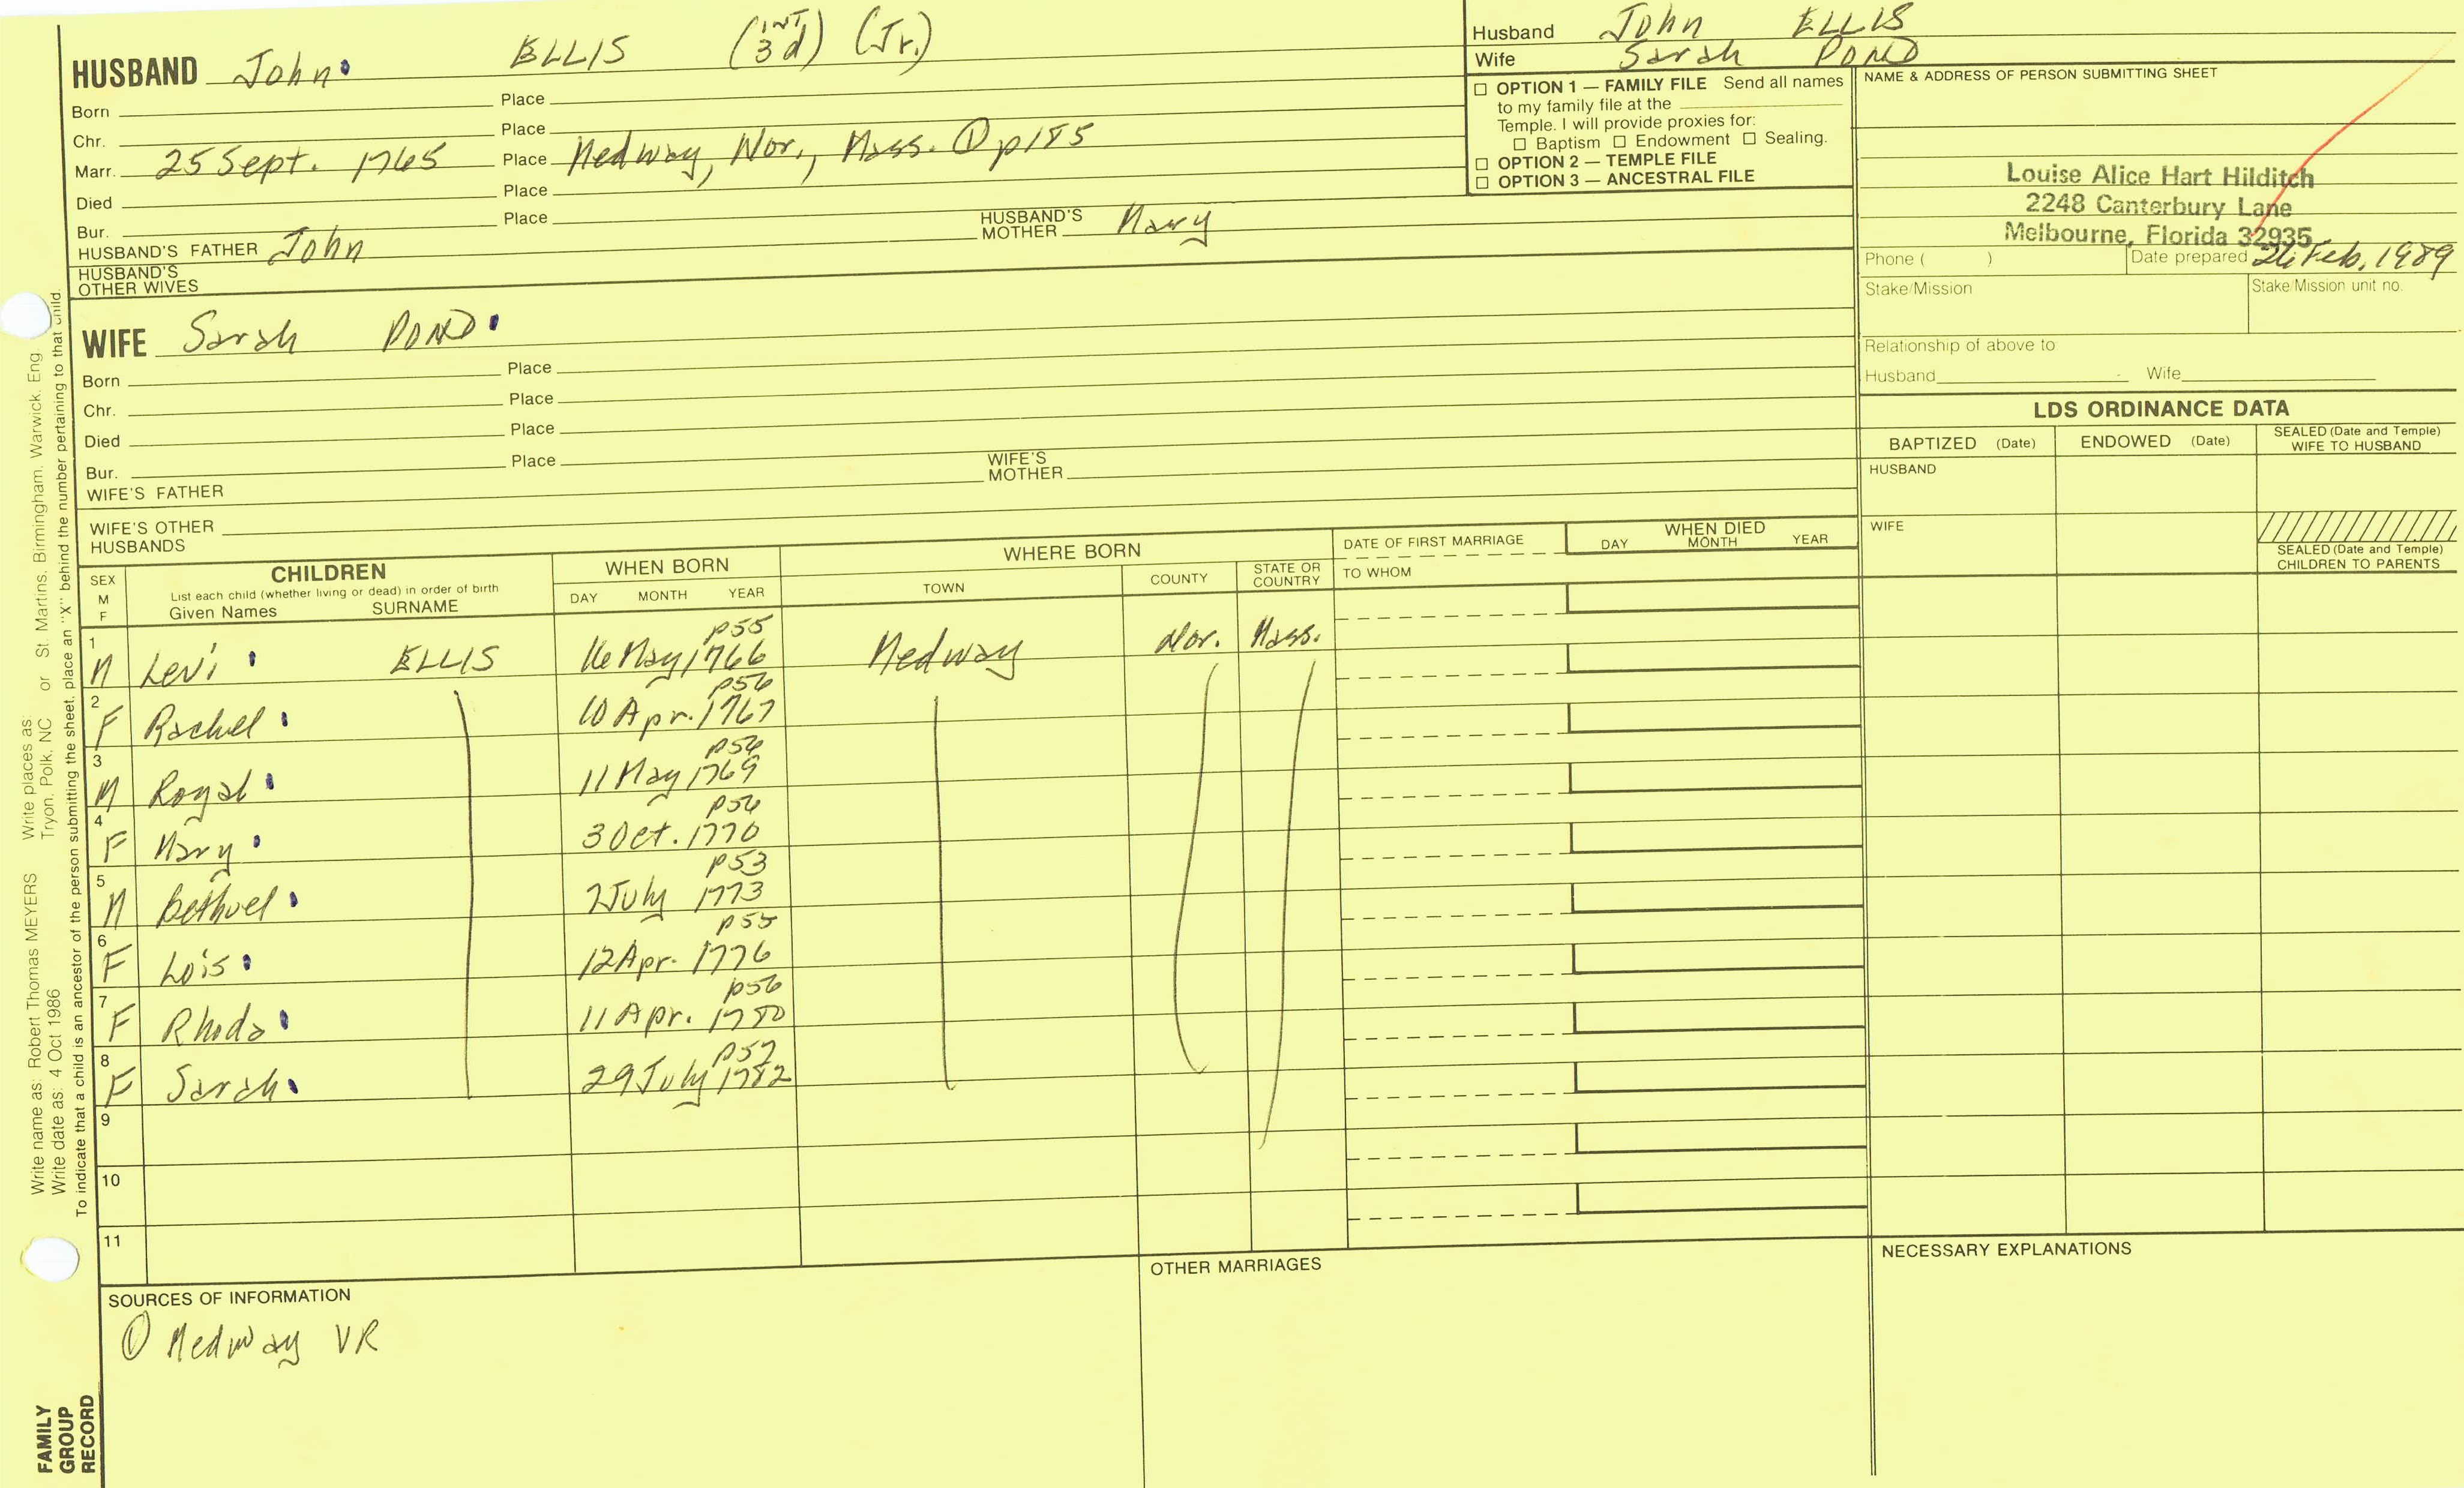 HUSBAND John ELLIS (INT 3d) (Jr.)
Born Place
Chr. Place
Marr. 25 Sept. 1765 Place Medway, Nor., Mass. ① p185
Died Place
Bur. Place
HUSBAND'S FATHER John HUSBAND'S MOTHER Mary
HUSBAND'S OTHER WIVES
WIFE Sarah POND
Born Place
Chr. Place
Died Place
Bur. Place
WIFE'S FATHER WIFE'S MOTHER
WIFE'S OTHER HUSBANDS
Husband John ELLIS
Wife Sarah POND
☐ OPTION 1 — FAMILY FILE Send all names
to my family file at the
Temple. I will provide proxies for:
☐ Baptism ☐ Endowment ☐ Sealing.
☐ OPTION 2 — TEMPLE FILE
☐ OPTION 3 — ANCESTRAL FILE
NAME & ADDRESS OF PERSON SUBMITTING SHEET
Louise Alice Hart Hilditch
2248 Canterbury Lane
Melbourne, Florida 32935
Phone ( ) Date prepared 26 Feb. 1989
Stake/Mission Stake/Mission unit no.
Relationship of above to
Husband Wife
LDS ORDINANCE DATA
BAPTIZED (Date) ENDOWED (Date) SEALED (Date and Temple) WIFE TO HUSBAND
HUSBAND
WIFE
SEALED (Date and Temple) CHILDREN TO PARENTS
SEX M F
CHILDREN
List each child (whether living or dead) in order of birth
Given Names SURNAME
WHEN BORN
DAY MONTH YEAR
WHERE BORN
TOWN COUNTY STATE OR COUNTRY
DATE OF FIRST MARRIAGE
TO WHOM
WHEN DIED
DAY MONTH YEAR
1 M Levi ELLIS 16 May 1766 p55 Medway Nor. Mass.
2 F Rachel 10 Apr. 1767 p56
3 M Royal 11 May 1769 p56
4 F Mary 3 Oct. 1770 p56
5 M Bethuel 2 July 1773 p53
6 F Lois 12 Apr. 1776 p55
7 F Rhoda 11 Apr. 1780 p56
8 F Sarah 29 July 1782 p57
9
10
11
SOURCES OF INFORMATION
① Medway VR
OTHER MARRIAGES
NECESSARY EXPLANATIONS
Write name as: Robert Thomas MEYERS Write places as: Tryon, Polk, NC or St. Martins, Birmingham, Warwick, Eng
Write date as: 4 Oct 1986
To indicate that a child is an ancestor of the person submitting the sheet, place an "X" behind the number pertaining to that child.
FAMILY
GROUP
RECORD